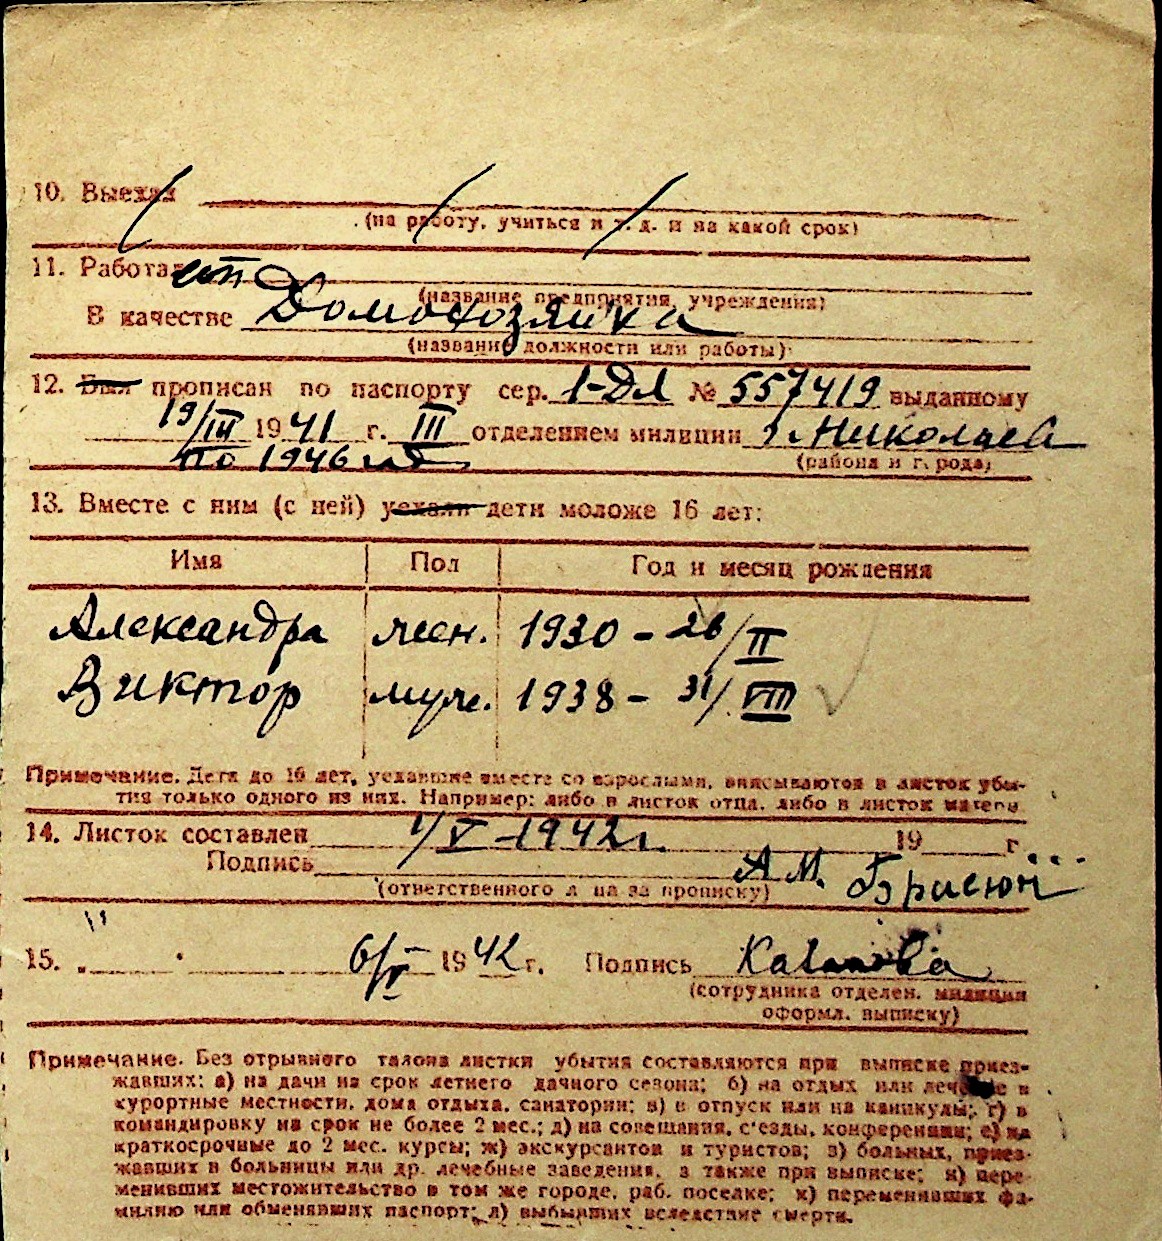 10. Выехал
(на работу, учиться и т. д. и на какой срок)
11. Работает
(название предприятия, учреждения)
В качестве Домохозяйка
(название должности или работы)
12. Был прописан по паспорту сер. 1-ДЛ № 557419 выданному
19/III 1941 г. III отделением милиции г. Николаев
по 1946 год
(района и города)
13. Вместе с ним (с ней) уехали дети моложе 16 лет:
Имя Пол Год и месяц рождения
Александра жен. 1930 - 26/II
Виктор муж. 1938 - 31/VIII
Примечание. Дети до 16 лет, уехавшие вместе со взрослыми, вписываются в листок убы-
тия только одного из них. Например: либо в листок отца, либо в листок матери
14. Листок составлен 1/V - 1942 г. 19 г.
Подпись А. М.
(ответственного л на за прописку)
15. „ " 6/V 1942 г. Подпись
(сотрудника отделен. милиции
оформл. выписку)
Примечание. Без отрывного талона листки убытия составляются при выписке приез-
жавших: а) на дачи на срок летнего дачного сезона; б) на отдых или лечение в
курортные местности, дома отдыха, санатории; в) в отпуск или на каникулы; г) в
командировку на срок не более 2 мес.; д) на совещания, с'езды, конференции; е) на
краткосрочные до 2 мес. курсы; ж) экскурсантов и туристов; з) больных, приез-
жавших в больницы или др. лечебные заведения, а также при выписке; и) пере-
менивших местожительство в том же городе, раб. поселке; к) переменивших фа-
милию или обменявших паспорт; л) выбывших вследствие смерти.